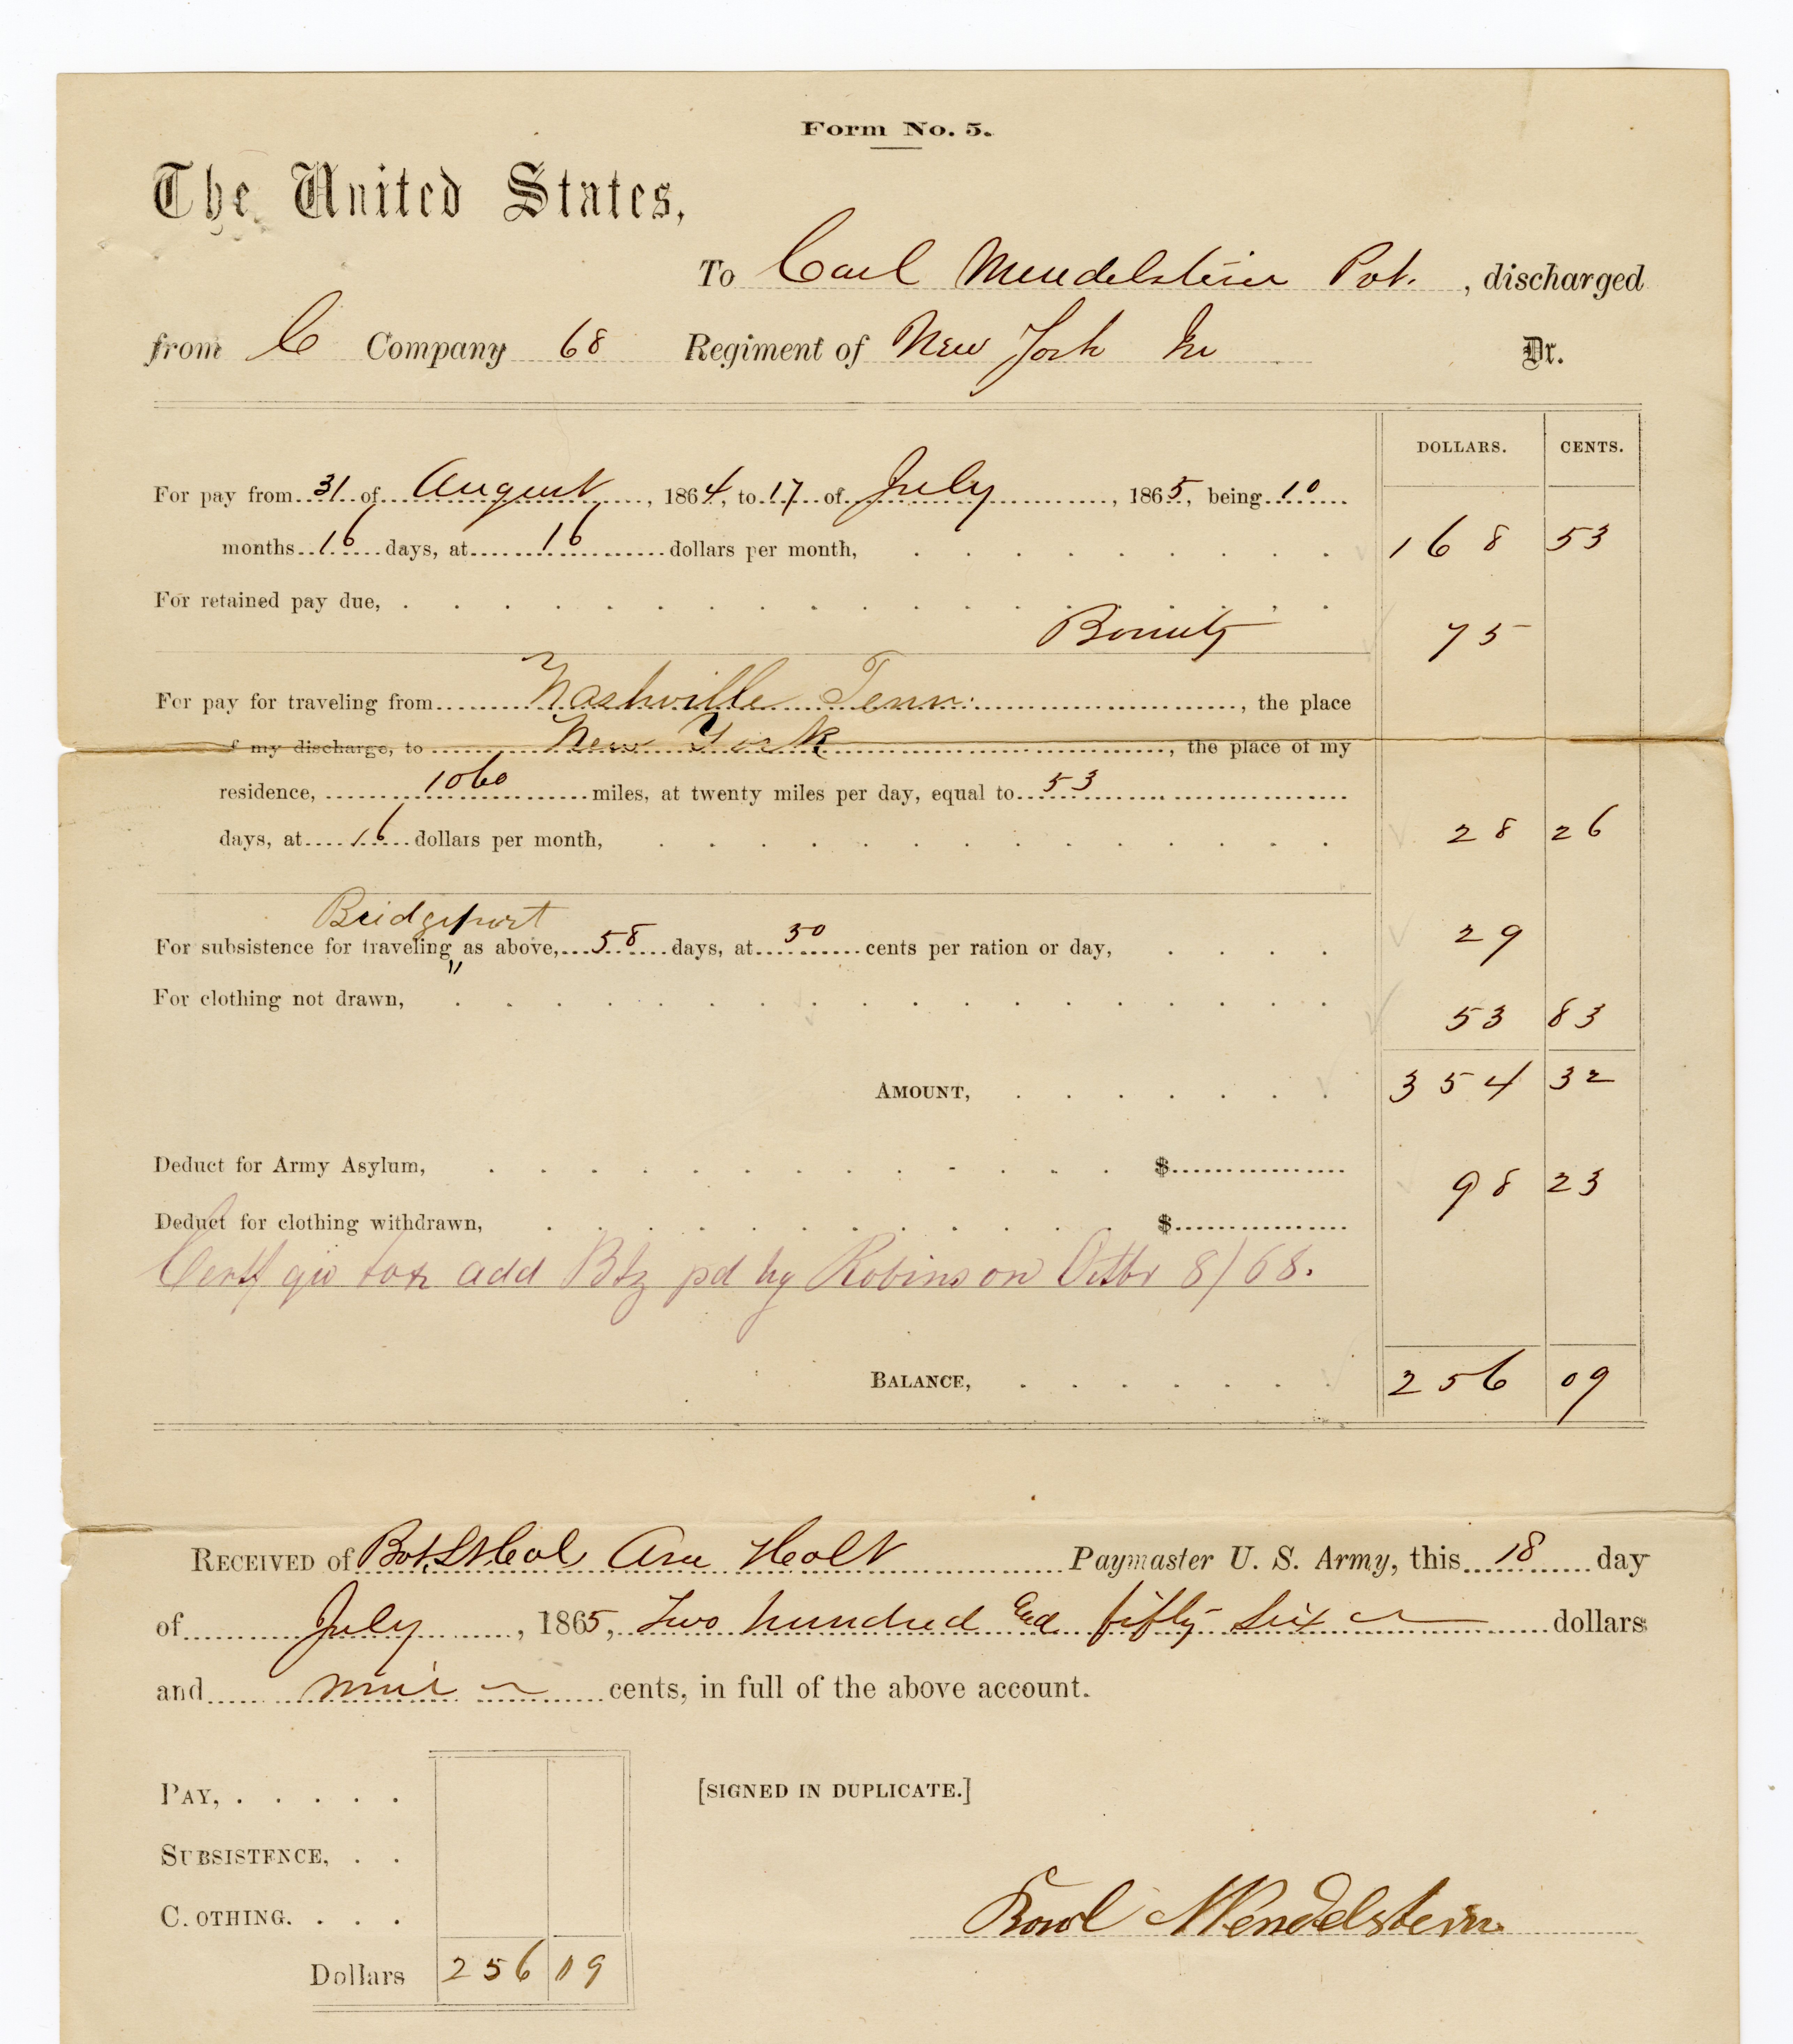 Form No. 5.
The United States,
To Carl Mendelstein Pvt. , discharged
from C Company 68 Regiment of New York Dr.
DOLLARS. CENTS.
For pay from 31 of August , 1864, to 17 of July , 1865, being 10
months 16 days, at 16 dollars per month, 168 53
For retained pay due,
Bounty 75
For pay for traveling from Nashville Tenn. , the place
of my discharge, to New York , the place of my
residence, 1060 miles, at twenty miles per day, equal to 53
days, at 16 dollars per month, 28 26
Bridgeport
For subsistence for traveling " as above, 58 days, at 50 cents per ration or day, 29
For clothing not drawn, 53 83
AMOUNT, 354 32
Deduct for Army Asylum, $ 98 23
Deduct for clothing withdrawn, $
add Bty pd by Robinson Octbr 8/68.
BALANCE, 256 09
RECEIVED of Bvt. Lt Col Asa Holt Paymaster U. S. Army, this 18 day
of July , 1865, Two hundred and fifty six dollars
and nine cents, in full of the above account.
PAY,
[SIGNED IN DUPLICATE.]
SUBSISTENCE,
C.OTHING.
Karl Mendelstein
Dollars 256 09